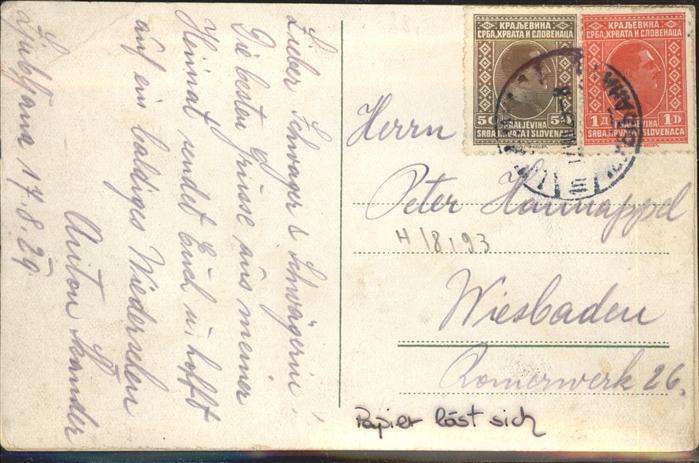 Ljubljana 17.8.29
Lieber Schwager & Schwägerin!
Die besten Grüsse aus meiner
Heimat sendet Euch u. hofft
auf ein baldiges Wiedersehen
Anton
КРАЉЕВИНА
СРБА, ХРВАТА И СЛОВЕНАЦА
50 50
KRALJEVINA
SRBA, HRVATA I SLOVENACA
КРАЉЕВИНА
СРБА, ХРВАТА И СЛОВЕНАЦА
1 D 1 D
KRALJEVINA
SRBA, HRVATA I SLOVENACA
Herrn
Peter Hannappel
H/8193
Wiesbaden
Römerwerk 26.
Papier löst sich